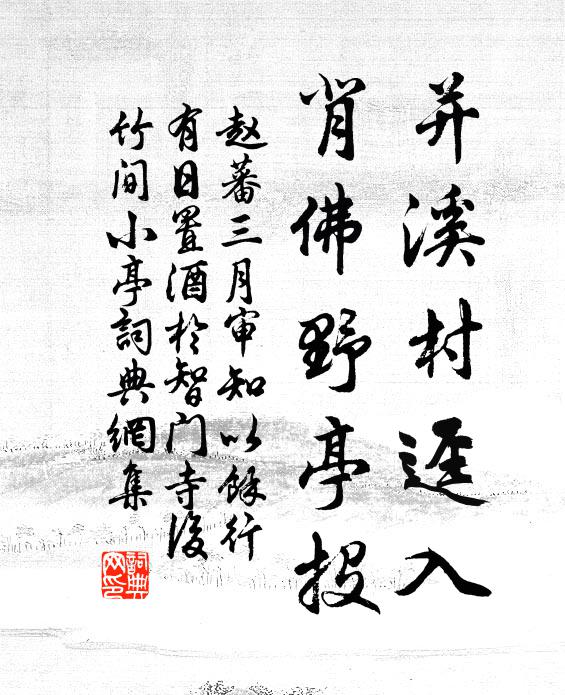 并溪村迳入
肯佛野亭投
赵蕃三月审知以馀行
有日置酒于智门寺后
竹间小亭词典网集
词典
网印